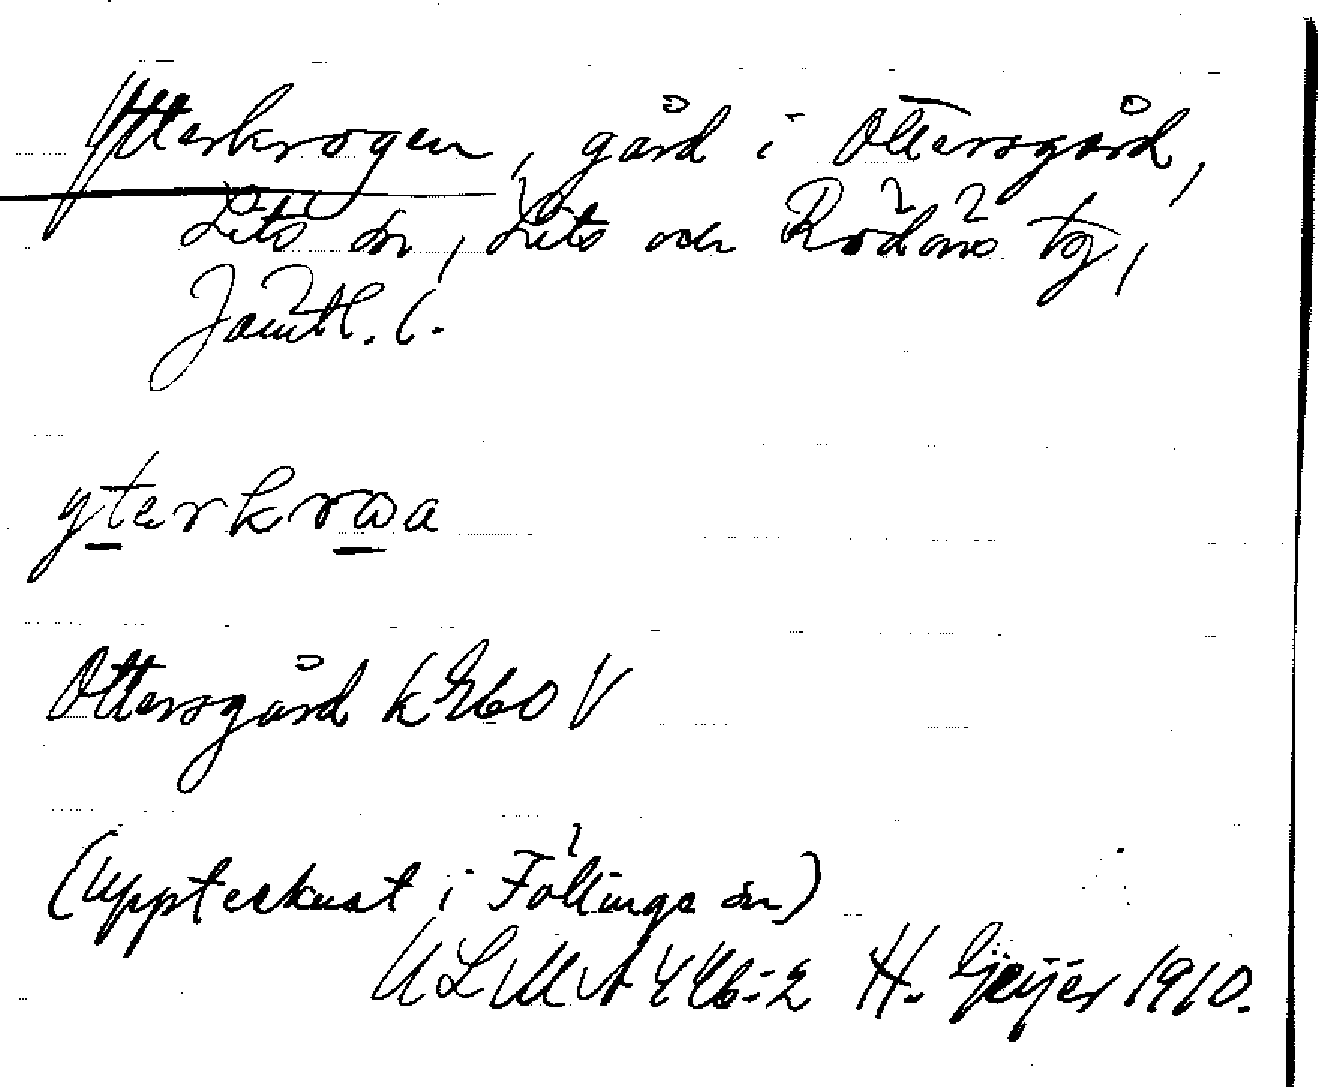 Ytterkrogen, gård i Ottersgård,
Lits sn, Lits och Rödöns tg,
Jämtl. l.
yterkrωa
Ottersgård k 960 V
(uppteknat i Föllinge sn)
ULMA 446:2 H. Geijer 1910.